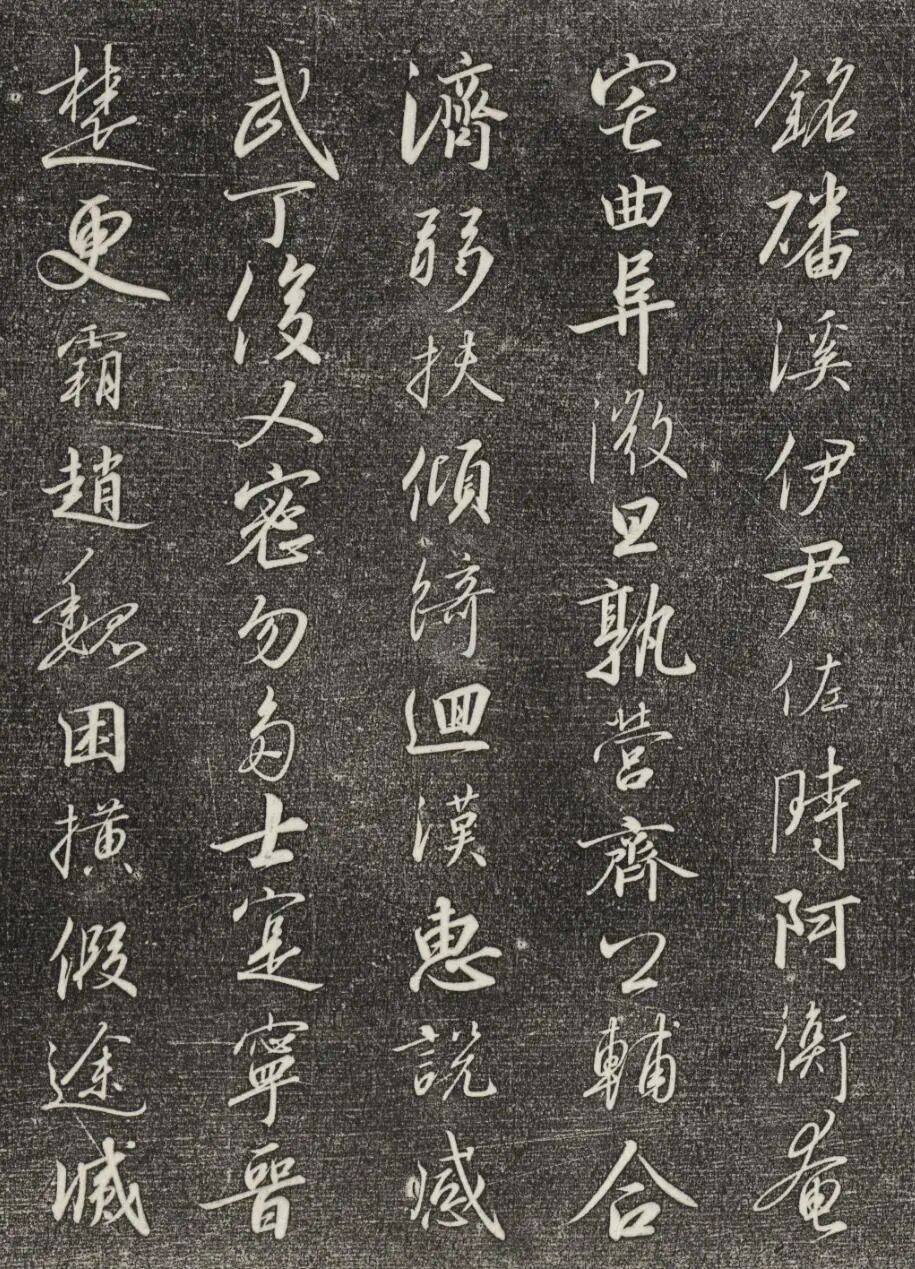 銘磻溪伊尹佐時阿衡奄
宅曲阜微旦孰營齊公輔合
濟弱扶傾綺迴漢惠說感
武丁俊乂密勿多士寔寧晉
楚更霸趙魏困横假途滅